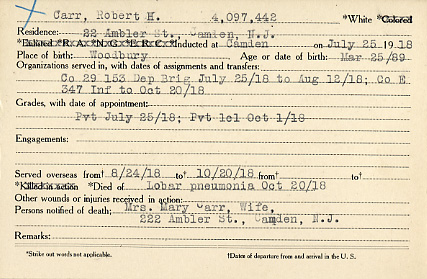 Carr, Robert H. 4,097,442 *White *Colored
Residence: 22 Ambler St., Camden, N.J.
*Enlisted *R.A. *N.G. *E.R.C. *Inducted at Camden on July 25 1918
Place of birth: Woodbury Age or date of birth: Mar 25/89
Organizations served in, with dates of assignments and transfers:
Co 29 153 Dep Brig July 25/18 to Aug 12/18; Co E
347 Inf to Oct 20/18
Grades, with date of appointment:
Pvt July 25/18; Pvt 1cl Oct 1/18
Engagements:
Served overseas from† 8/24/18 to† 10/20/18 from† to†
*Killed in action *Died of Lobar pneumonia Oct 20/18
Other wounds or injuries received in action:
Persons notified of death: Mrs. Mary Carr, Wife,
222 Ambler St., Camden, N.J.
Remarks:
*Strike out words not applicable. †Dates of departure from and arrival in the U. S.